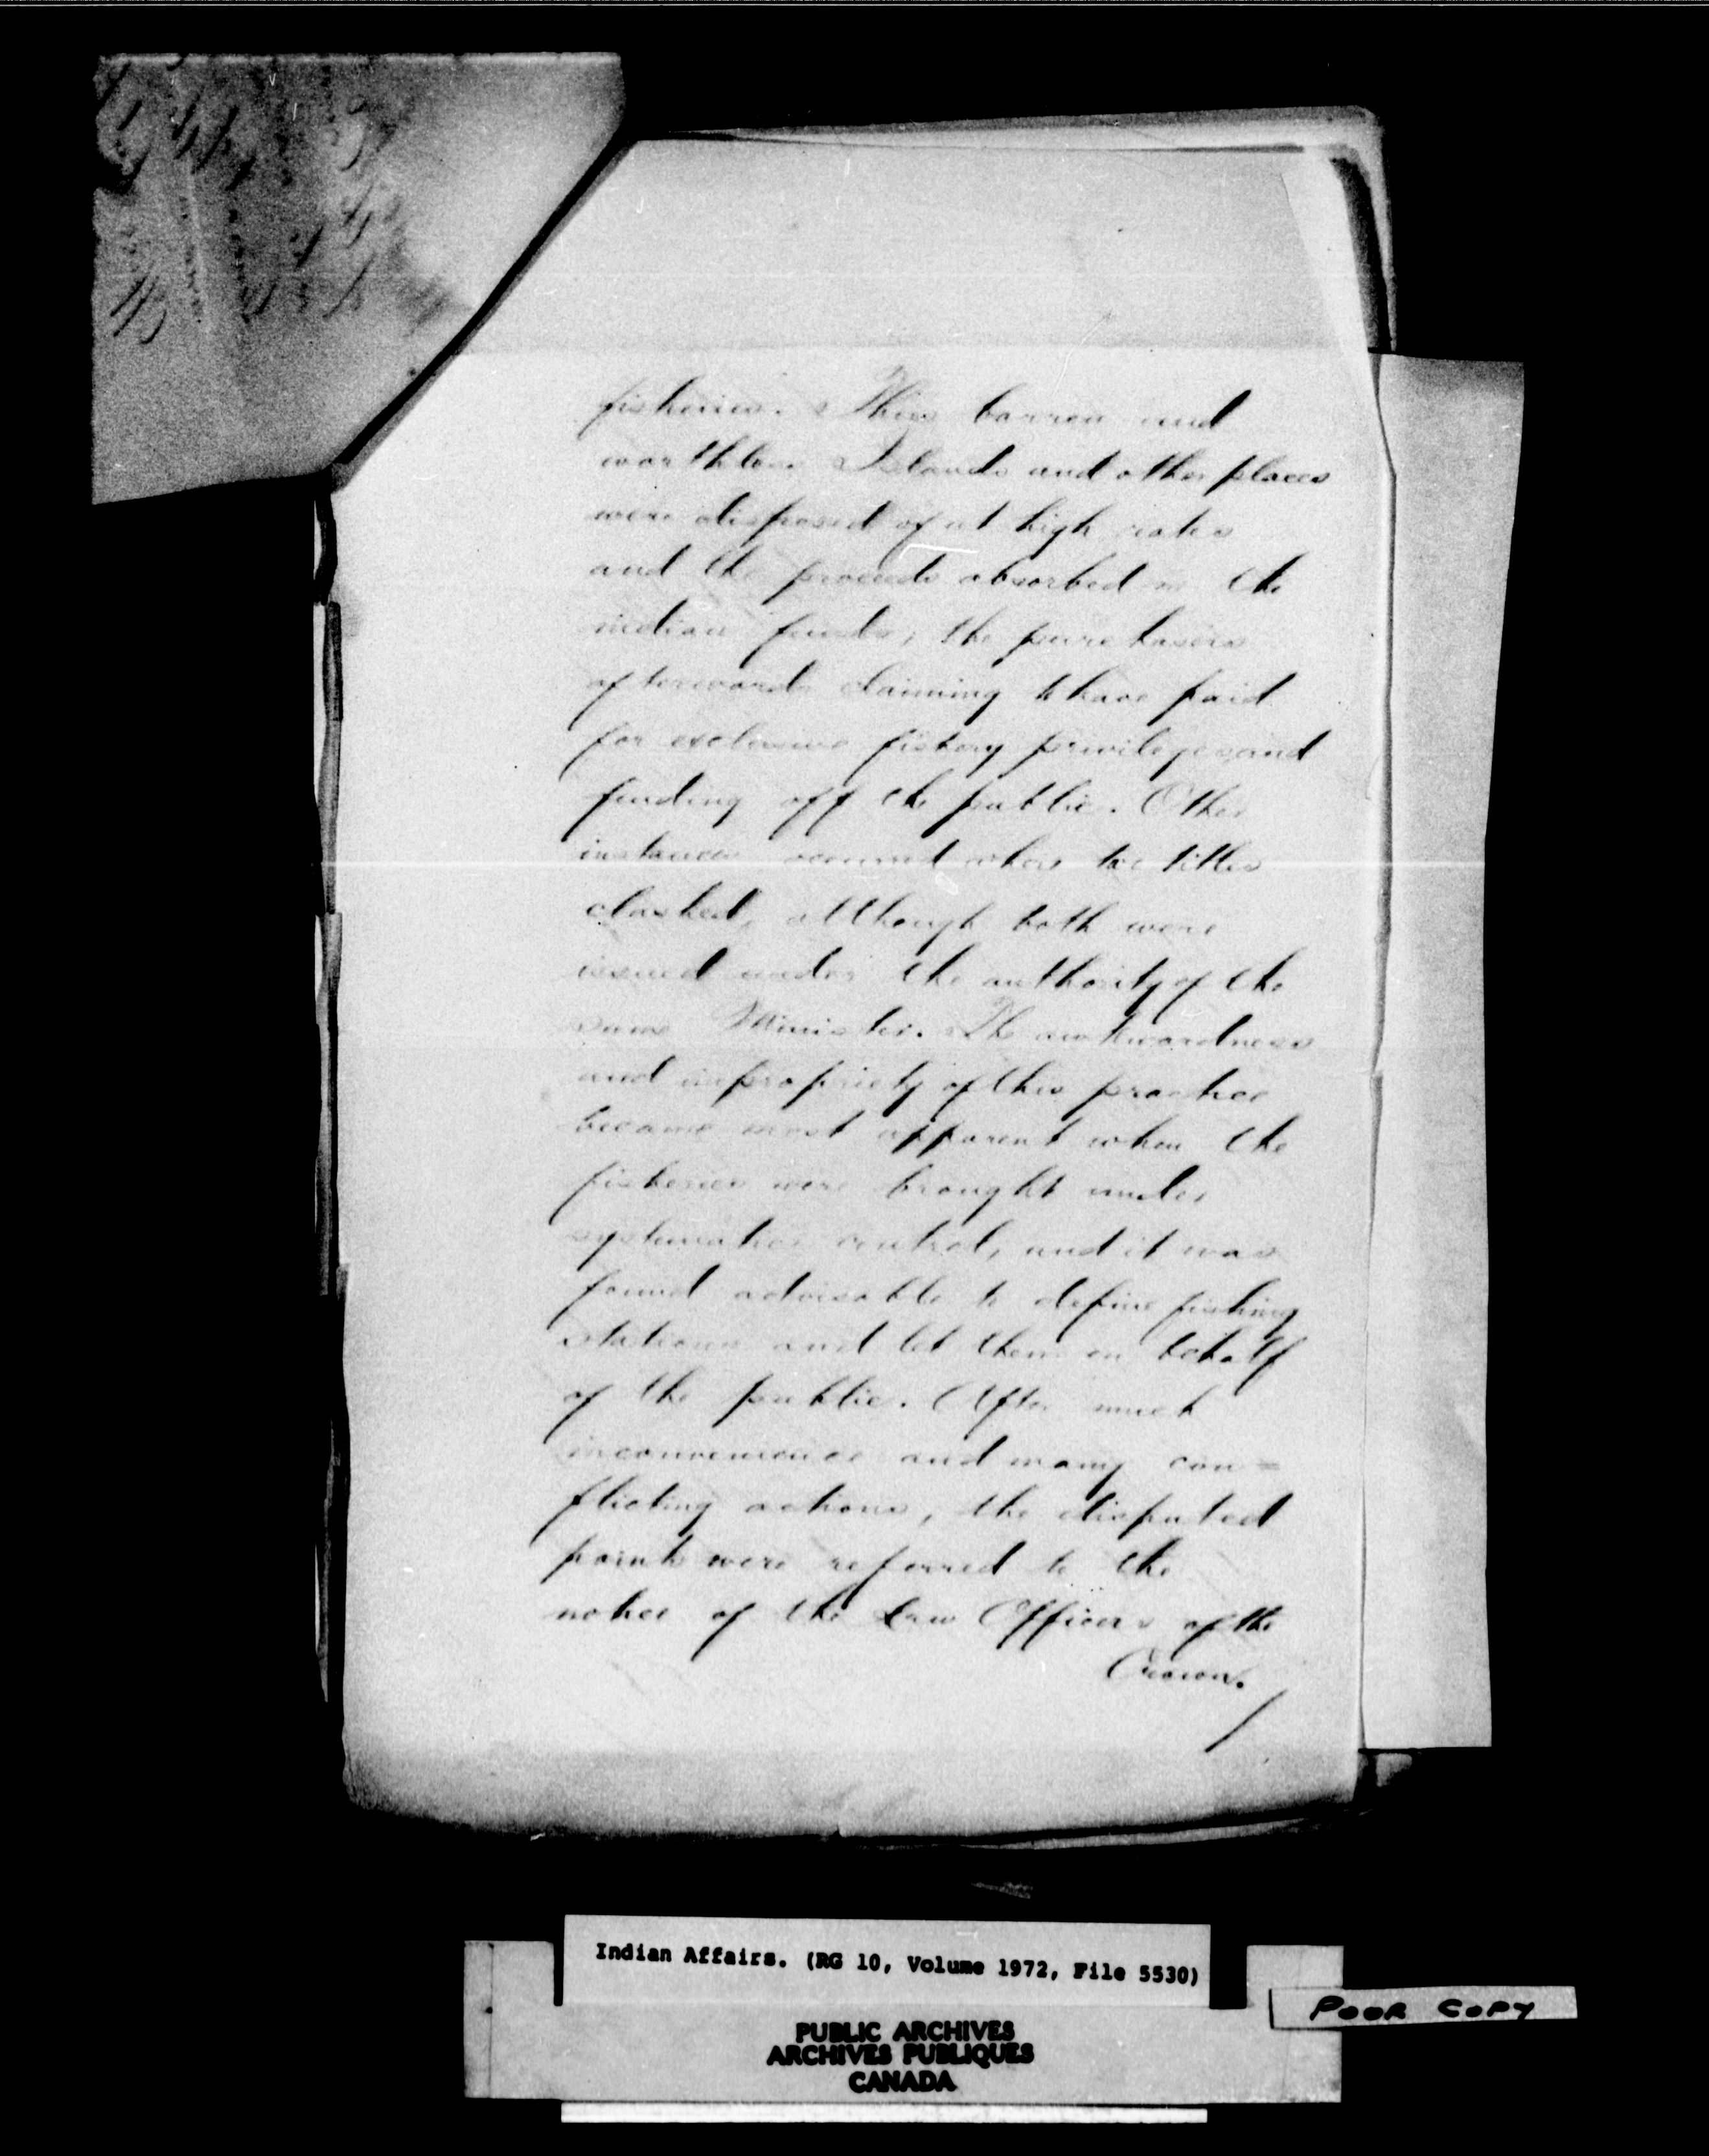 fisheries. Thus barren and
worthless Islands and other places
were disposed of at high rates
and the proceeds absorbed in the
indian funds; the purchasers
afterwards claiming to have paid
for exclusive fishery privileges and
fending off the public. Other
instances occurred where two titles
clashed, although both were
issued under the authority of the
same Minister. The awkwardness
and impropriety of this practice
became most apparent when the
fisheries were brought under
systematic control, and it was
found advisable to define fishing
stations and let them on behalf
of the public. After much
inconvenience and many con=
flicting actions, the disputed
points were referred to the
notice of the Law Officers of the
Crown.
Indian Affairs. (RG 10, Volume 1972, File 5530)
POOR COPY
PUBLIC ARCHIVES
ARCHIVES PUBLIQUES
CANADA